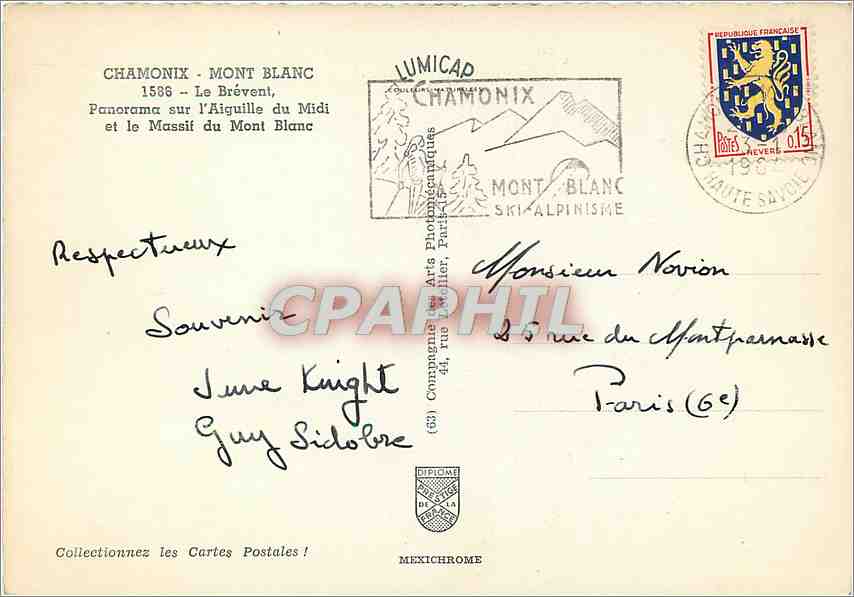 CHAMONIX - MONT BLANC
1586 - Le Brévent,
Panorama sur l'Aiguille du Midi
et le Massif du Mont Blanc
LUMICAP
COULEURS NATURELLES
CHAMONIX
MONT BLANC
SKI-ALPINISME
REPUBLIQUE FRANÇAISE
POSTES
0,15
NEVERS
HAUTE SAVOIE
Respectueux
Souvenir
June Knight
Guy Sidobre
(63) Compagnie des Arts Photomécaniques
44, rue Letellier, Paris-15
Monsieur Novion
25 rue du Montparnasse
Paris (6e)
CPAPHIL
DIPLOME
PRESTIGE
DE LA
FRANCE
Collectionnez les Cartes Postales !
MEXICHROME